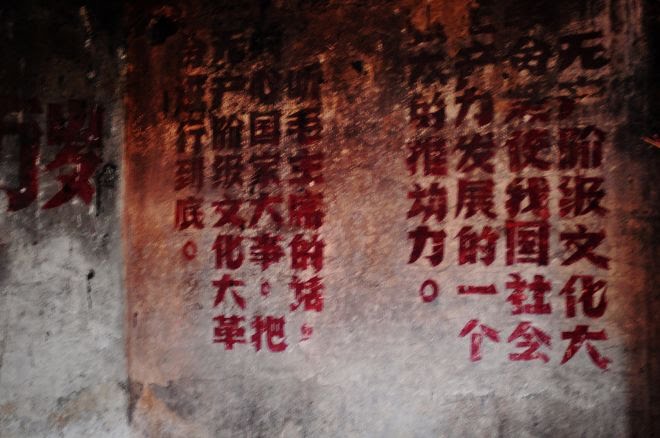 无产阶级文化大
命是使我国社会
产力发展的一个
大的推动力。
听毛主席的话，
关心国家大事，把
无产阶级文化大革
命进行到底。
万岁